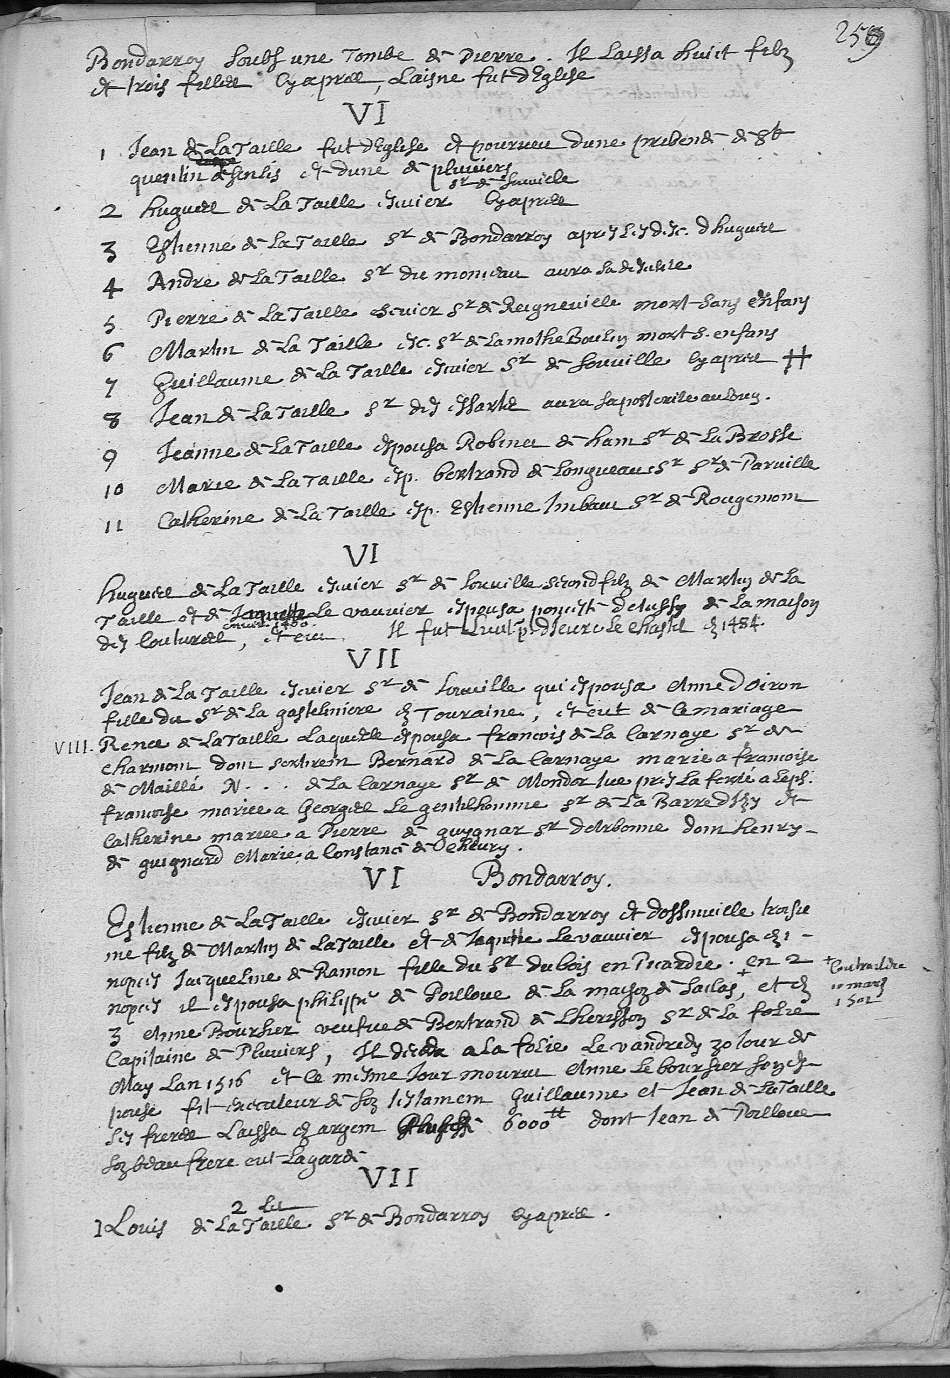 259
Bondarroy soubs une Tombe de pierre. Il Laissa huict filz
et trois filles Cyapres, Laisne fut dEglise
VI
1 Jean de La Taille fut dEglise et pourveu dune prebende de St
quentin de senlis et dune de pluviers
sr de Louville
2 hugues de La Taille escuier Cyapres
3 Estienne de La Taille Sr de Bondarroy apres les desc. dhugues
4 Andre de La Taille Sr du monceau aura sa
5 Pierre de La Taille escuier Sr de Reigneville mort sans enfans
6 Martin de La Taille esc. Sr de La mothe mort s. enfans
7 Guillaume de La Taille escuier Sr de Louville Cyapres #
8 Jean de La Taille Sr des essarts aura sa posterite au long.
9 Jeanne de La Taille espousa Robinet de ham Sr de La Brosse
10 Marie de La Taille esp. bertrand de Longueau Sr Sr de Parville
11 Catherine de La Taille esp. Estienne Imbaut Sr de Rougemont
VI
hugues de La Taille escuier Sr de Louville second filz de Martin de La
Taille et de Jaquette Le vauvier espousa poncete de Lussy de La maison
environ 1480.
des coutures, et eut Il fut dieure Le Chastel en 1484.
VII
Jean de La Taille escuier Sr de Louville qui espousa Anne dOiron
fille du Sr de La gasteliniere en Touraine, et eut de Ce mariage
VIII. Renee de La Taille Laquelle espousa francois de La Carnaye Sr de
Charmont dont sortirent Bernard de La Carnaye marie a francoise
de Maillé N . . . de La Carnaye Sr de Mondorlue pres La ferté aleps.
francoise mariee a Georges Le gentilhomme Sr de La Barre et
Catherine mariee a Pierre de guygnar Sr dArbonne dont henry
de guignard Marie a Constance de Cheury.
VI Bondarroy.
Estienne de La Taille escuier Sr de Bondarroy et dossinville troisie
me filz de Martin de La Taille et de Jaquette Le vauvier espousa en 1
nopces Jacqueline de Ramon fille du Sr du bois en Picardie. en 2
nopces il espousa philippe de Poilloue de La maison de Saclas, + et en
+ Contract de
10 mars
1501
3 Anne Boursier veufve de Bertrand de Lherisson Sr de La folie
Capitaine de Pluviers, Il deceda a La folie Le vandredy 30 Jour de
May Lan 1516 et Ce mesme Jour mourut Anne Le boursier son es
pouse fit executeur de son testament Guillaume et Jean de La Taille
ses freres Laissa en argent 6000tt dont Jean de Poilloue
son beau frere eut La garde
VII
2 Lit
1 Louis de La Taille Sr de Bondarroy Cyapres.